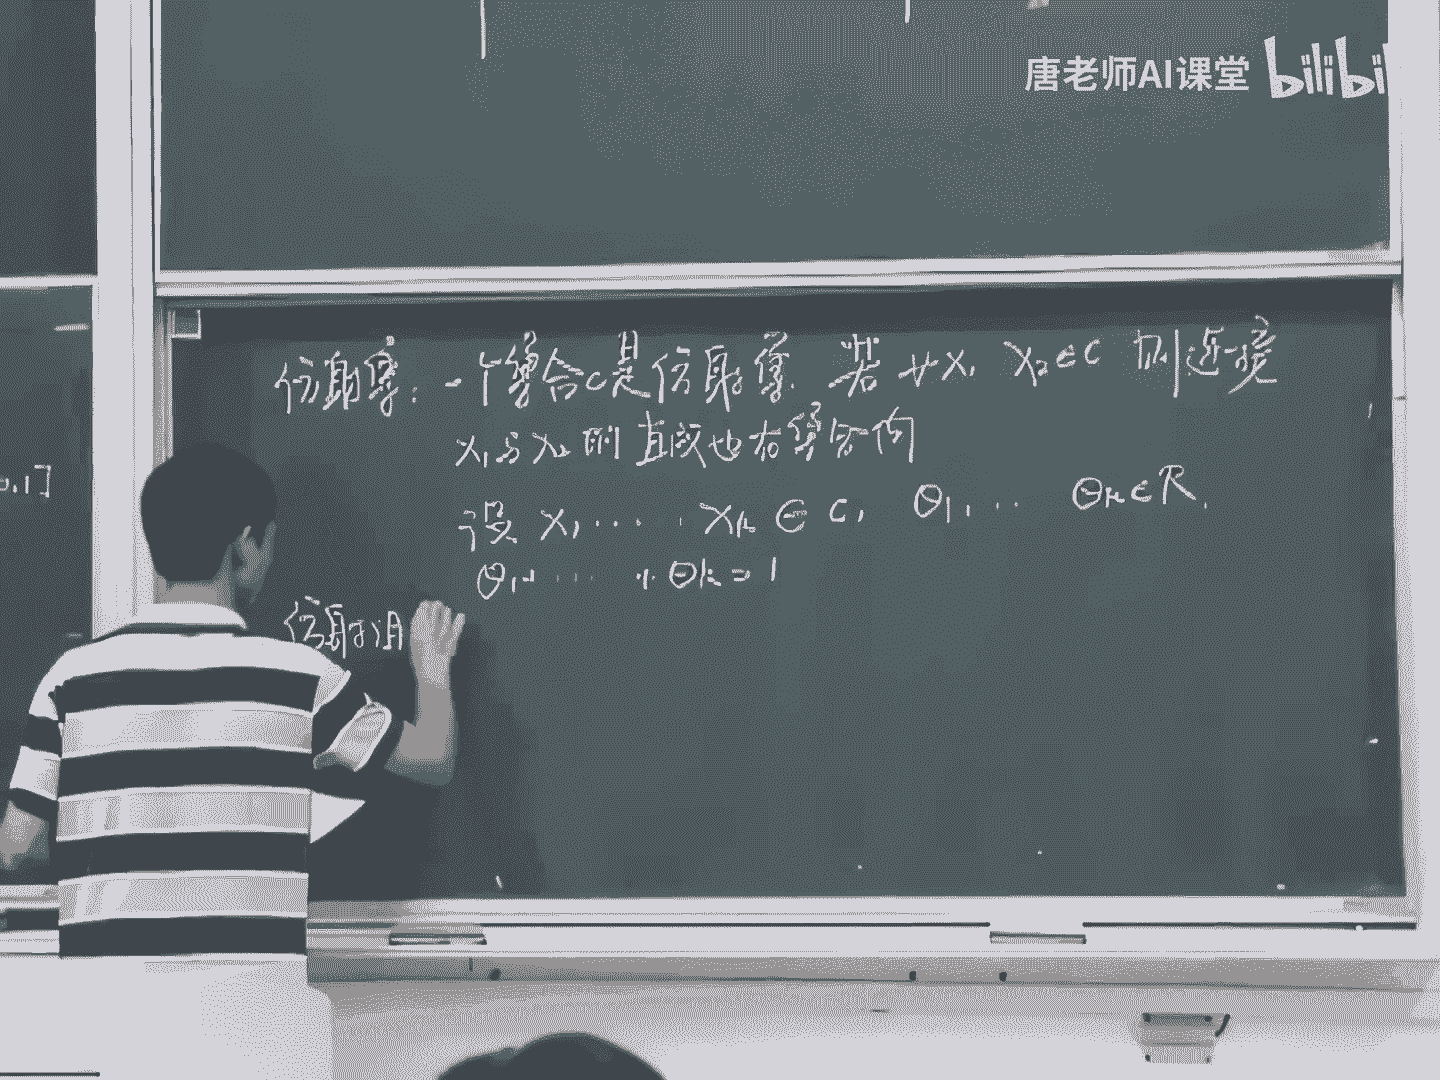 唐老师AI课堂 bilibil
0.1]
仿射集: 一个集合C是仿射集. 若 ∀X₁ X₂∈C 则连接
X₁与X₂的直线也在集合内
设 X₁ ... Xₖ ∈ C, θ₁, ... θₖ∈R.
θ₁+ ... + θₖ = 1
仿射组